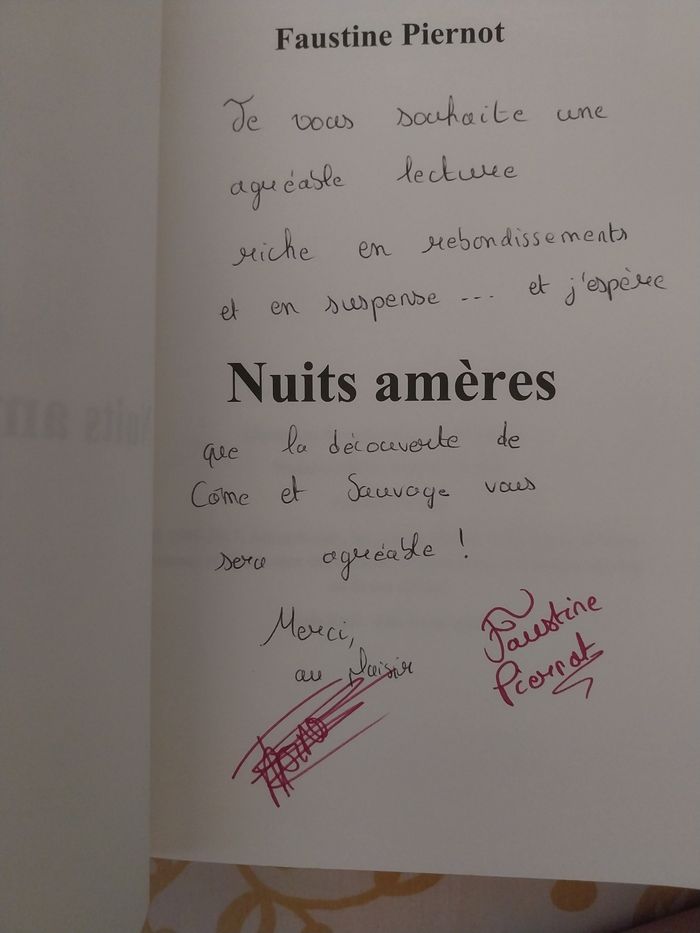 Faustine Piernot
Je vous souhaite une
agréable lecture
riche en rebondissements
et en suspense ... et j'espère
Nuits amères
que la découverte de
Côme et Sauvage vous
sera agréable !
Merci,
au plaisir
Faustine
Piernot